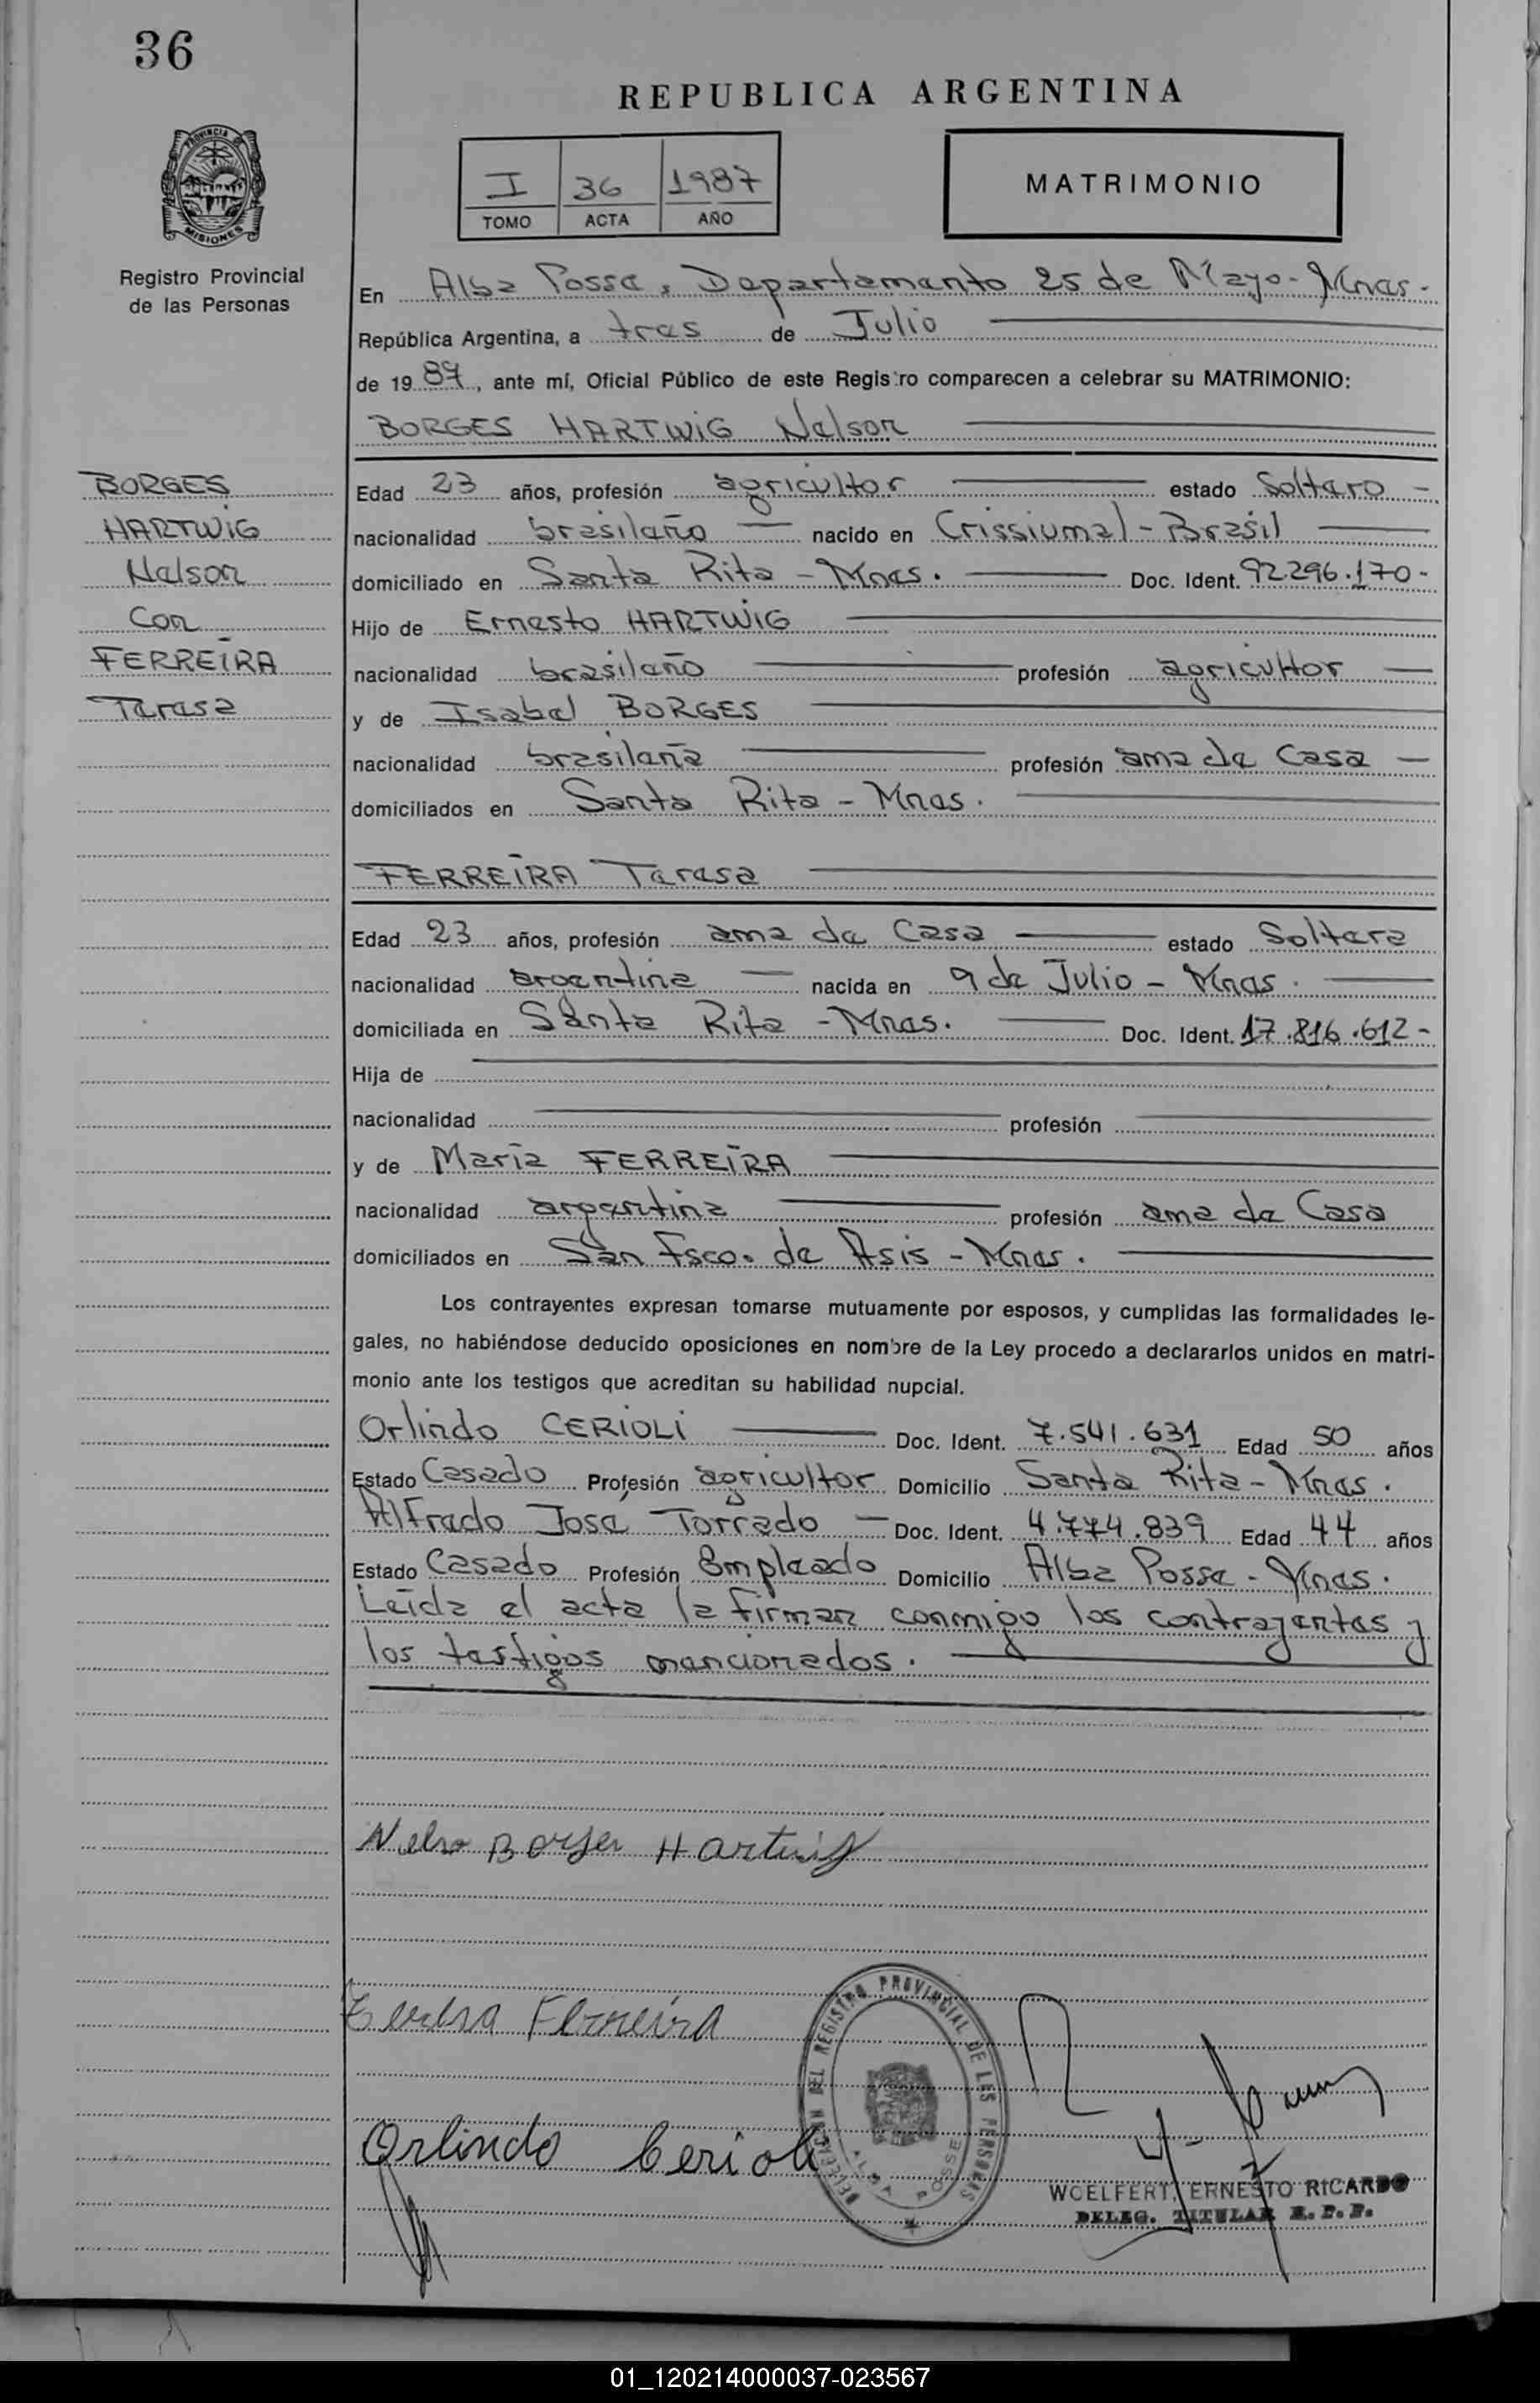 36
REPUBLICA ARGENTINA
PROVINCIA
MISIONES
I 36 1987
TOMO ACTA AÑO
MATRIMONIO
Registro Provincial
de las Personas
En Alba Posse, Departamento 25 de Mayo - Mnes.
República Argentina, a tres de Julio
de 19 87, ante mí, Oficial Público de este Registro comparecen a celebrar su MATRIMONIO:
BORGES HARTWIG Nelson
BORGES
HARTWIG
Nelson
Con
FERREIRA
Teresa
Edad 23 años, profesión agricultor estado Soltero -
nacionalidad brasileño nacido en Crissiumal - Brasil
domiciliado en Santa Rita - Mnes. Doc. Ident. 92.296.170-
Hijo de Ernesto HARTWIG
nacionalidad brasileño profesión agricultor
y de Isabel BORGES
nacionalidad brasileña profesión ama de Casa
domiciliados en Santa Rita - Mnes.
FERREIRA Teresa
Edad 23 años, profesión ama de Casa estado Soltera
nacionalidad argentina nacida en 9 de Julio - Mnes.
domiciliada en Santa Rita - Mnes. Doc. Ident. 17.816.612-
Hija de
nacionalidad profesión
y de María FERREIRA
nacionalidad argentina profesión ama de Casa
domiciliados en San Fsco. de Asis - Mnes.
Los contrayentes expresan tomarse mutuamente por esposos, y cumplidas las formalidades le-
gales, no habiéndose deducido oposiciones en nombre de la Ley procedo a declararlos unidos en matri-
monio ante los testigos que acreditan su habilidad nupcial.
Orlindo CERIOLI Doc. Ident. 7.541.631 Edad 50 años
Estado Casado Profesión agricultor Domicilio Santa Rita - Mnes.
Alfredo José Torrado Doc. Ident. 4.774.839 Edad 44 años
Estado Casado Profesión Empleado Domicilio Alba Posse - Mnes.
Leída el acta la firman conmigo los contrayentes y
los testigos mencionados.
Nelso Borges Hartwig
Teresa Ferreira
Orlindo Cerioli
DELEGACION DEL REGISTRO PROVINCIAL DE LAS PERSONAS
ALBA POSSE
WOELFERT, ERNESTO RICARDO
DELEG. TITULAR R. P. P.
01_120214000037-023567